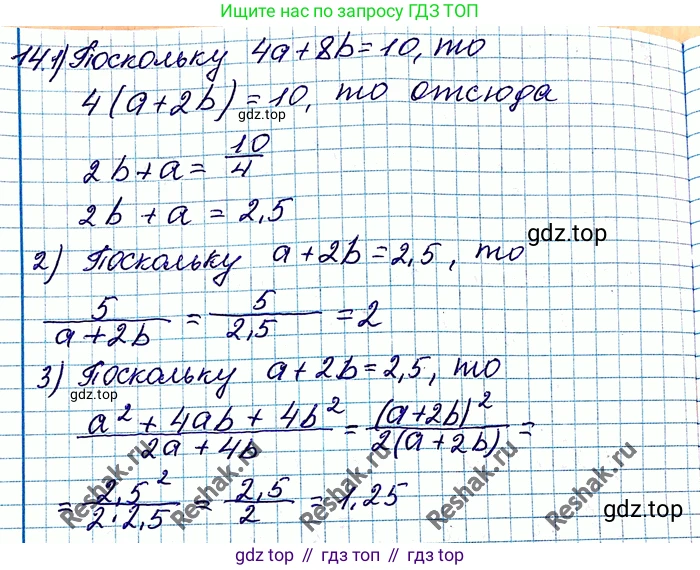 Найди больше решений на нашем сайте
по запросу ГДЗ ТОП
14.1) Поскольку 4a + 8b = 10, то
4(a + 2b) = 10, то отсюда
gdz.top
2b + a = 10/4
2b + a = 2,5
gdz.top
2) Поскольку a + 2b = 2,5, то
5/(a + 2b) = 5/2,5 = 2
3) Поскольку a + 2b = 2,5, то
gdz.top
(a² + 4ab + 4b²)/(2a + 4b) = (a + 2b)²/(2(a + 2b)) =
= 2,5²/(2·2,5) = 2,5/2 = 1,25
Reshak.ru Reshak.ru Reshak.ru Reshak.ru
gdz.top
gdz top // гдз топ // gdz.top // гдз.топ